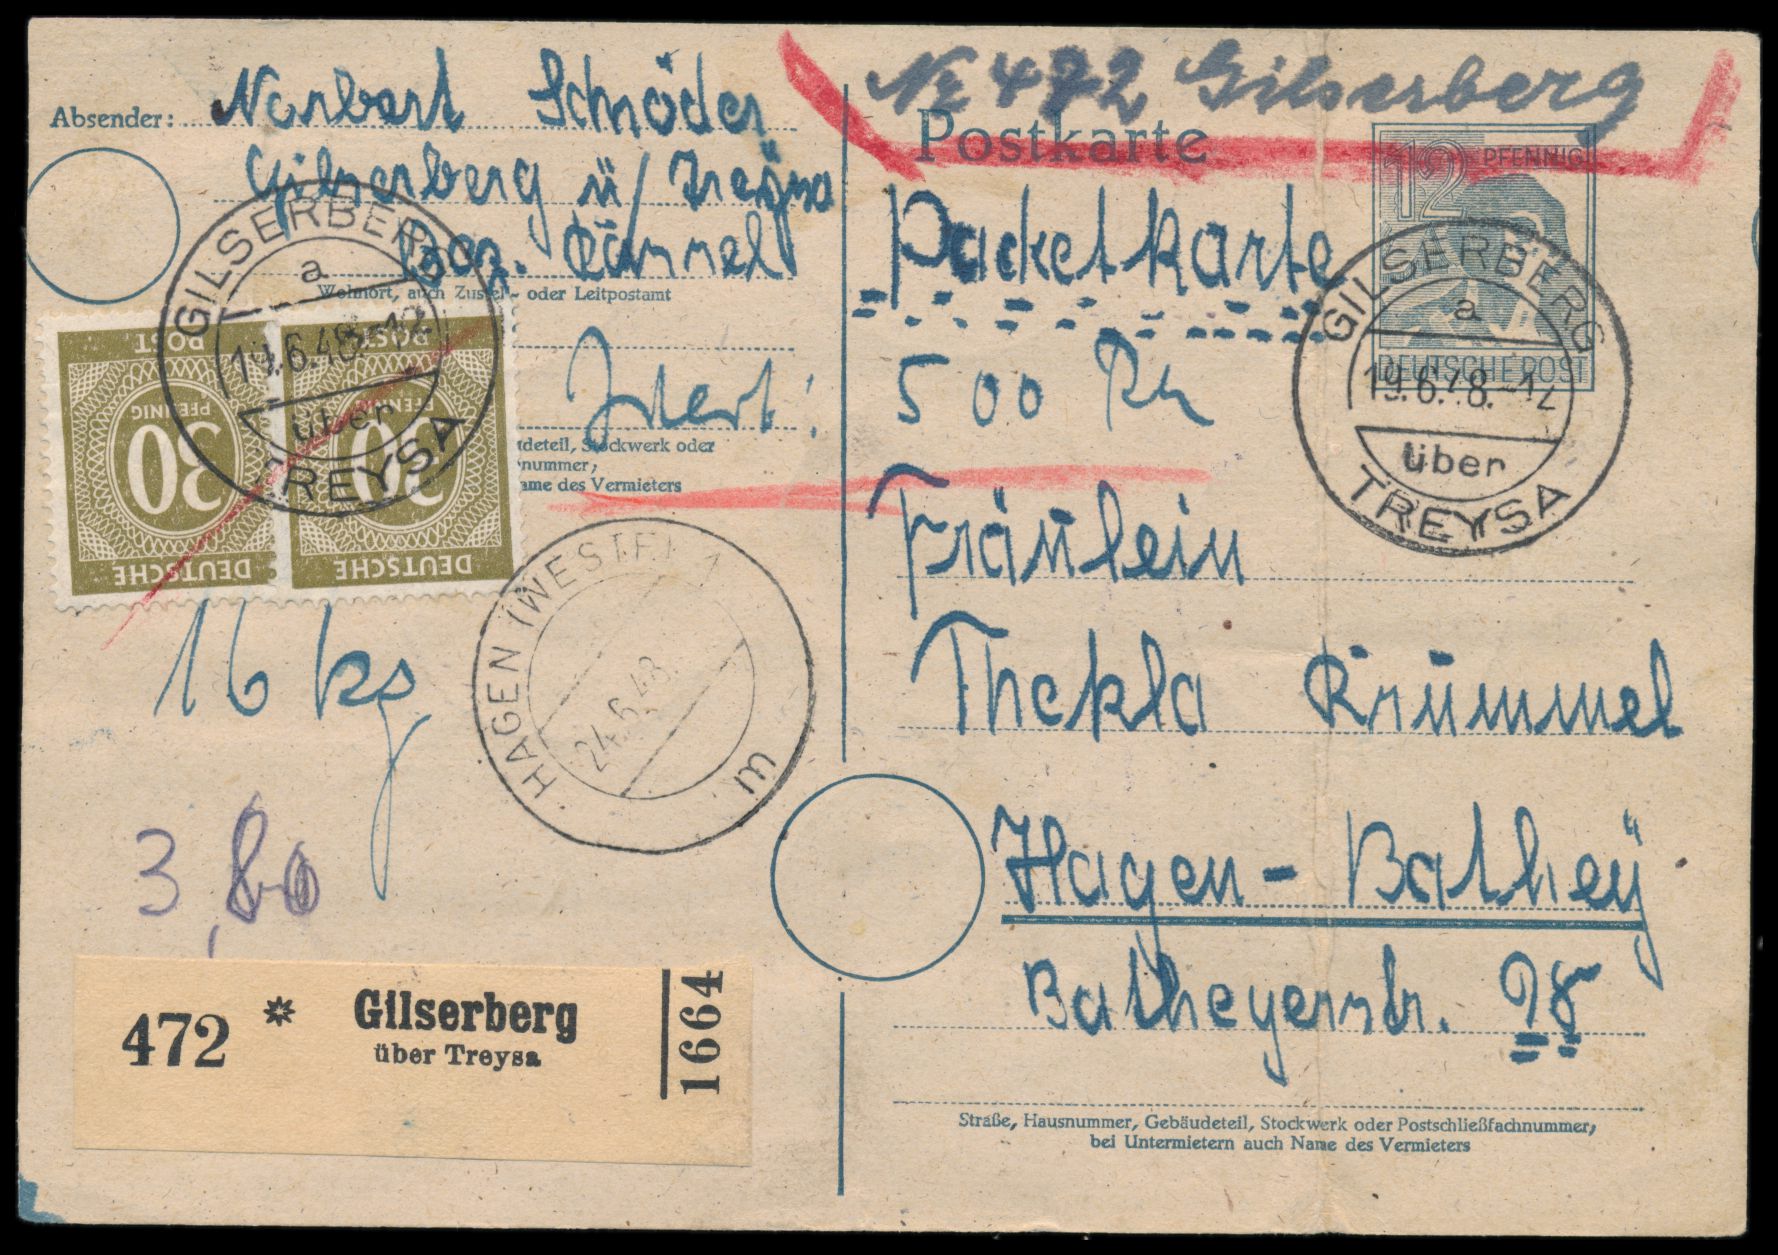 Absender: Norbert Schröder
Gilserberg ü/Treysa
Bez. Kassel
Wohnort, auch Zustell- oder Leitpostamt
Wert:
deteil, Stockwerk oder
nummer,
ame des Vermieters
16 kg
3,80
472 * Gilserberg
über Treysa
1664
DEUTSCHE
POST
30
PFENNIG
DEUTSCHE
POST
30
PFENNIG
GILSERBERG
a
19.6.48.-12
über
TREYSA
HAGEN (WESTF) 1
24.6.48.
m
Nr 472 Gilserberg
Postkarte
12 PFENNIG
DEUTSCHE POST
Packetkarte
500 RM
GILSERBERG
a
19.6.48.-12
über
TREYSA
Fräulein
Thekla Krümmel
Hagen-Bathey
Batheyerstr. 98
Straße, Hausnummer, Gebäudeteil, Stockwerk oder Postschließfachnummer,
bei Untermietern auch Name des Vermieters